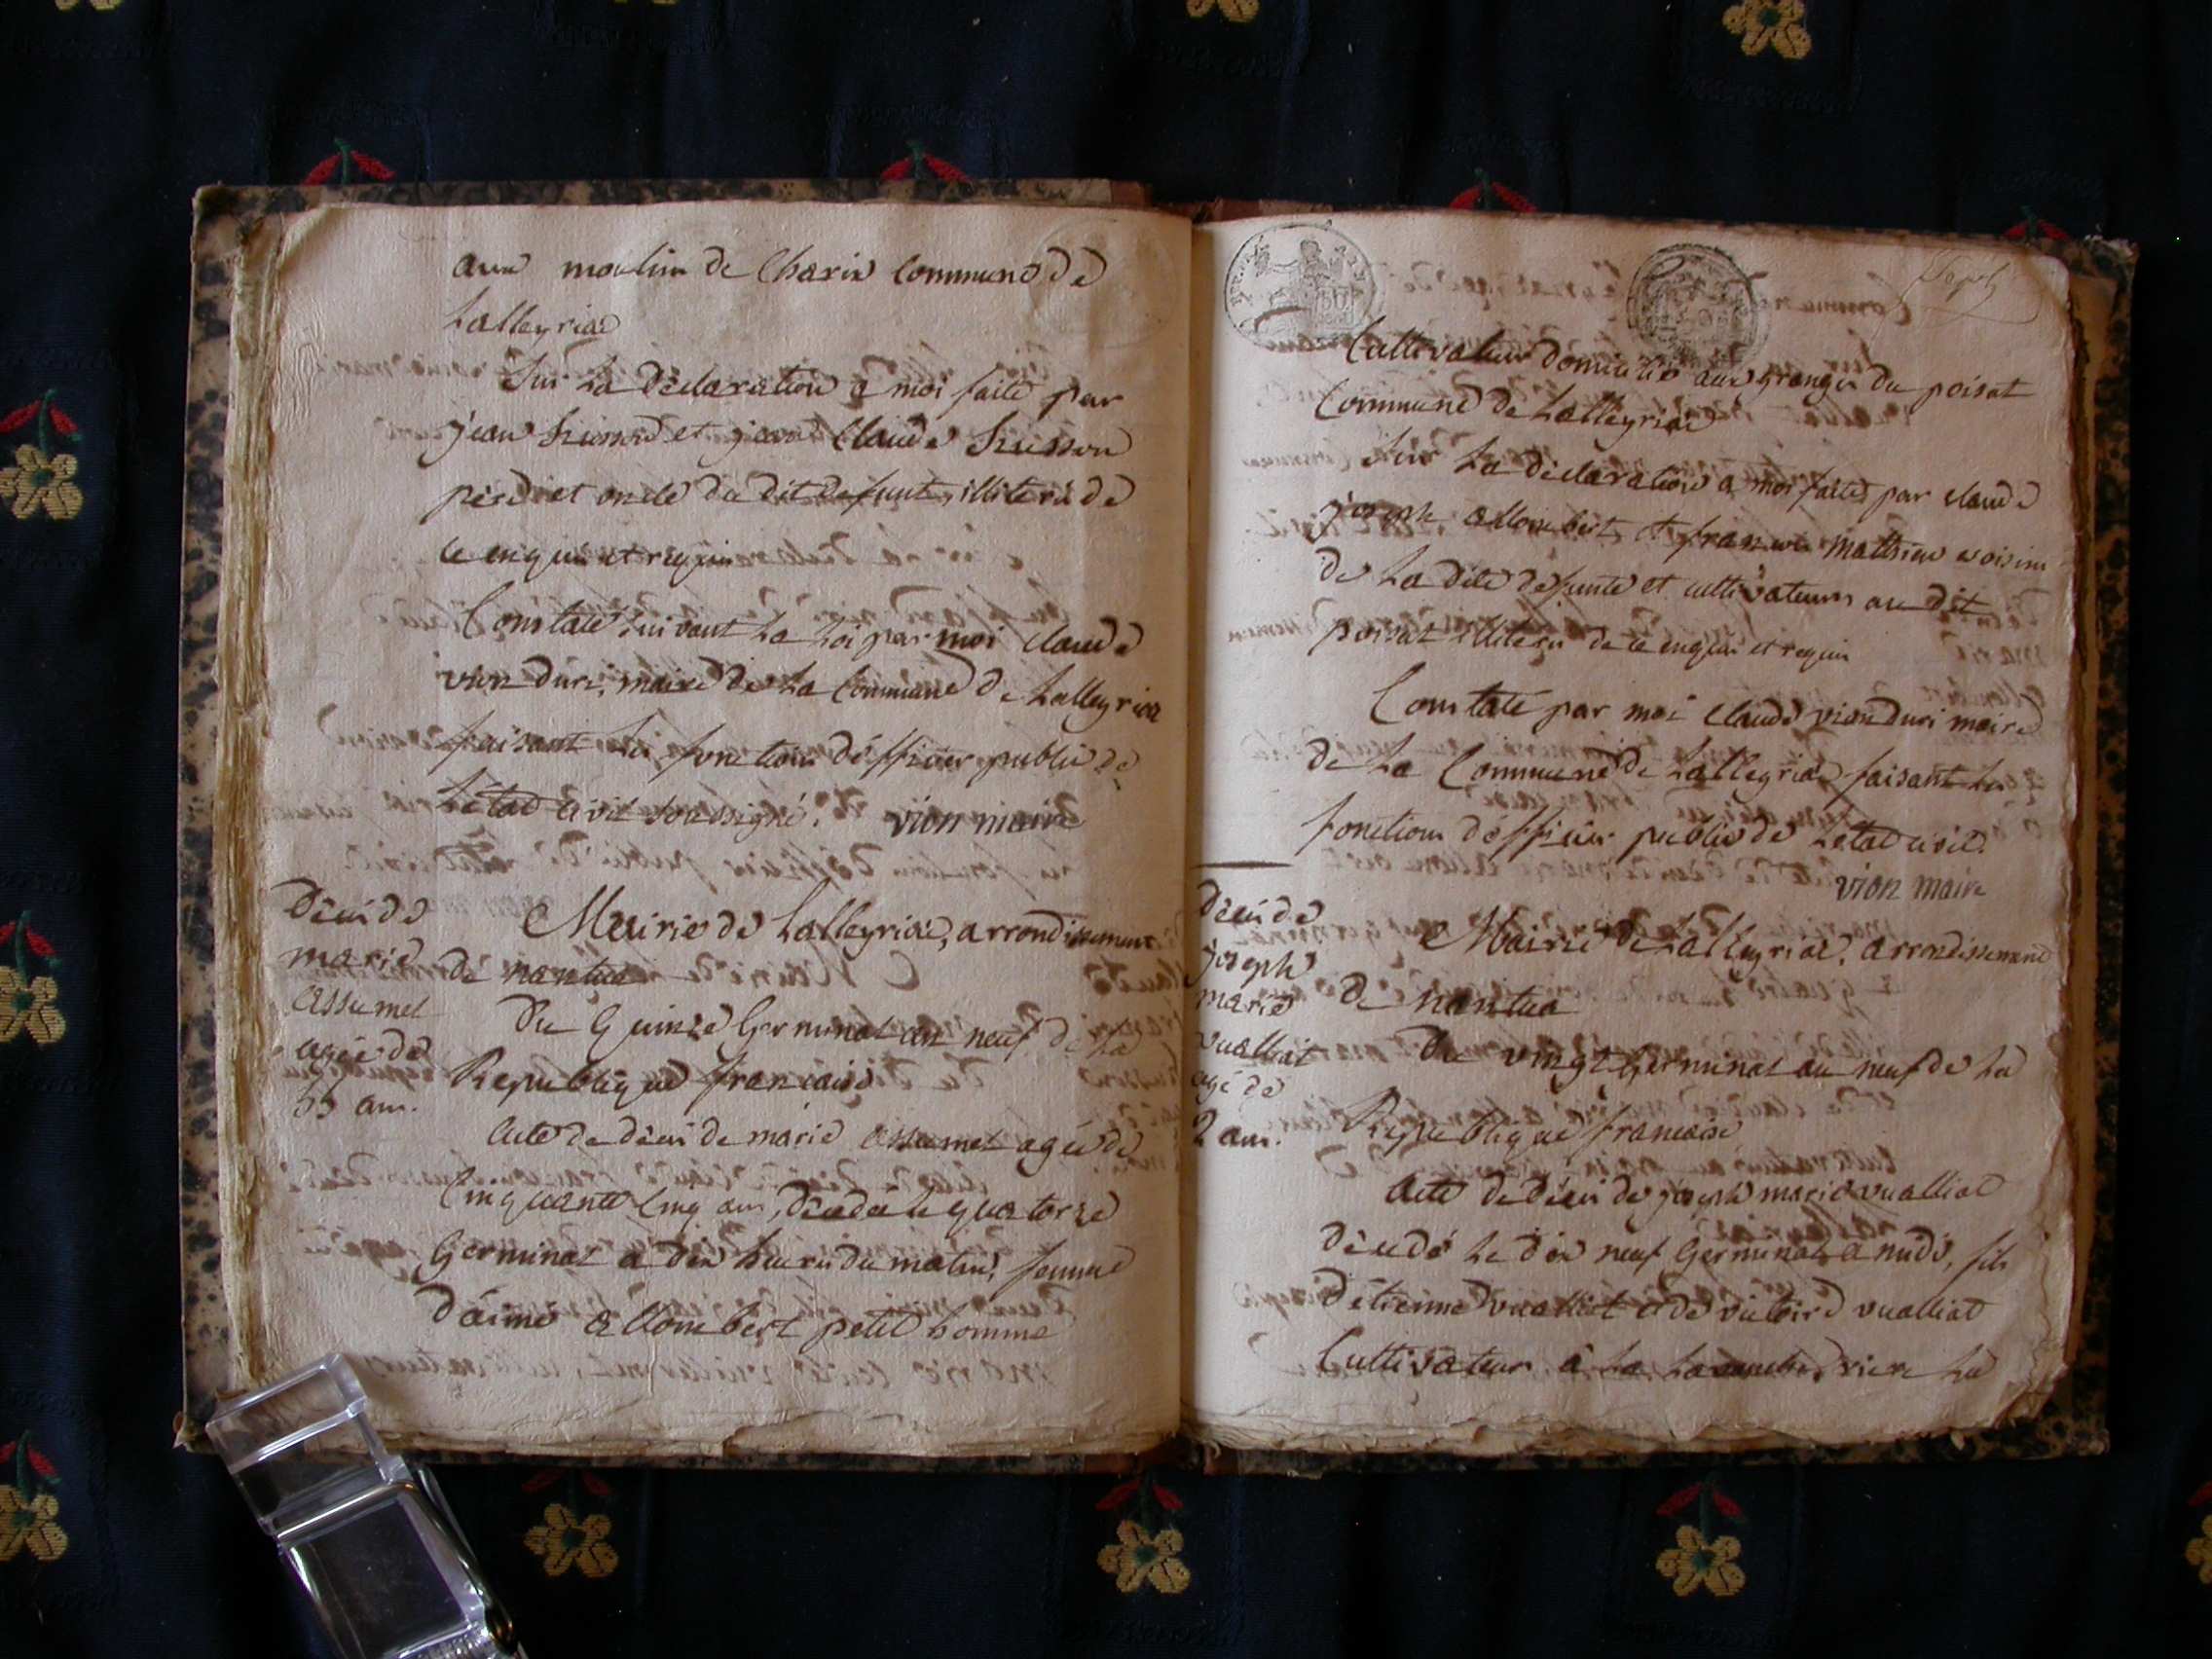 aux moulin de Charix Commune de
Lalleyriac
Sur La déclaration a moi faite par
jean husson et jean Claude husson
pére et oncle du dit defunt, illiteré de
ce enquis et requis
Constaté suivant La Loi par moi claude
vion duri, maire de La Commune de Lalleyriac
faisant Les fonctions d'officier public de
Létat civil soussigné. vion maire
Décés de
marie
assumel
agée de
55 ans.
Mairie de Lalleyriac, arrondissement
de nantua
Du Quinze Germinal an neuf de La
Republique francaise
acte de décés de marie assumel agée de
Cinquante Cinq ans, décédée le quatorze
Germinal a dix heures du matin, femme
d'aimé allombert petit homme
Cultivateur domicilié aux granges du poisat
Commune de Lalleyriac
Sur La déclaration a moi faite par claude
joseph allombert et francois mathieu voisins
de La dite defunte et cultivateurs au dit
poisat illiteré de ce enquis et requis
Constaté par moi claude vion duri maire
de La Commune de Lalleyriac faisant Les
fonctions d'officier public de Létat civil.
vion maire
décés de
joseph
marie
vualliat
agé de
2 ans.
Mairie de Lalleyriac, arrondissement
de nantua
Du vingt Germinal an neuf de La
Republique francaise
acte de décés de joseph marie vualliat
décédé Le dix neuf Germinal a midi, fils
d'etienne vualliat et de victoire vualliat
Cultivateur á La